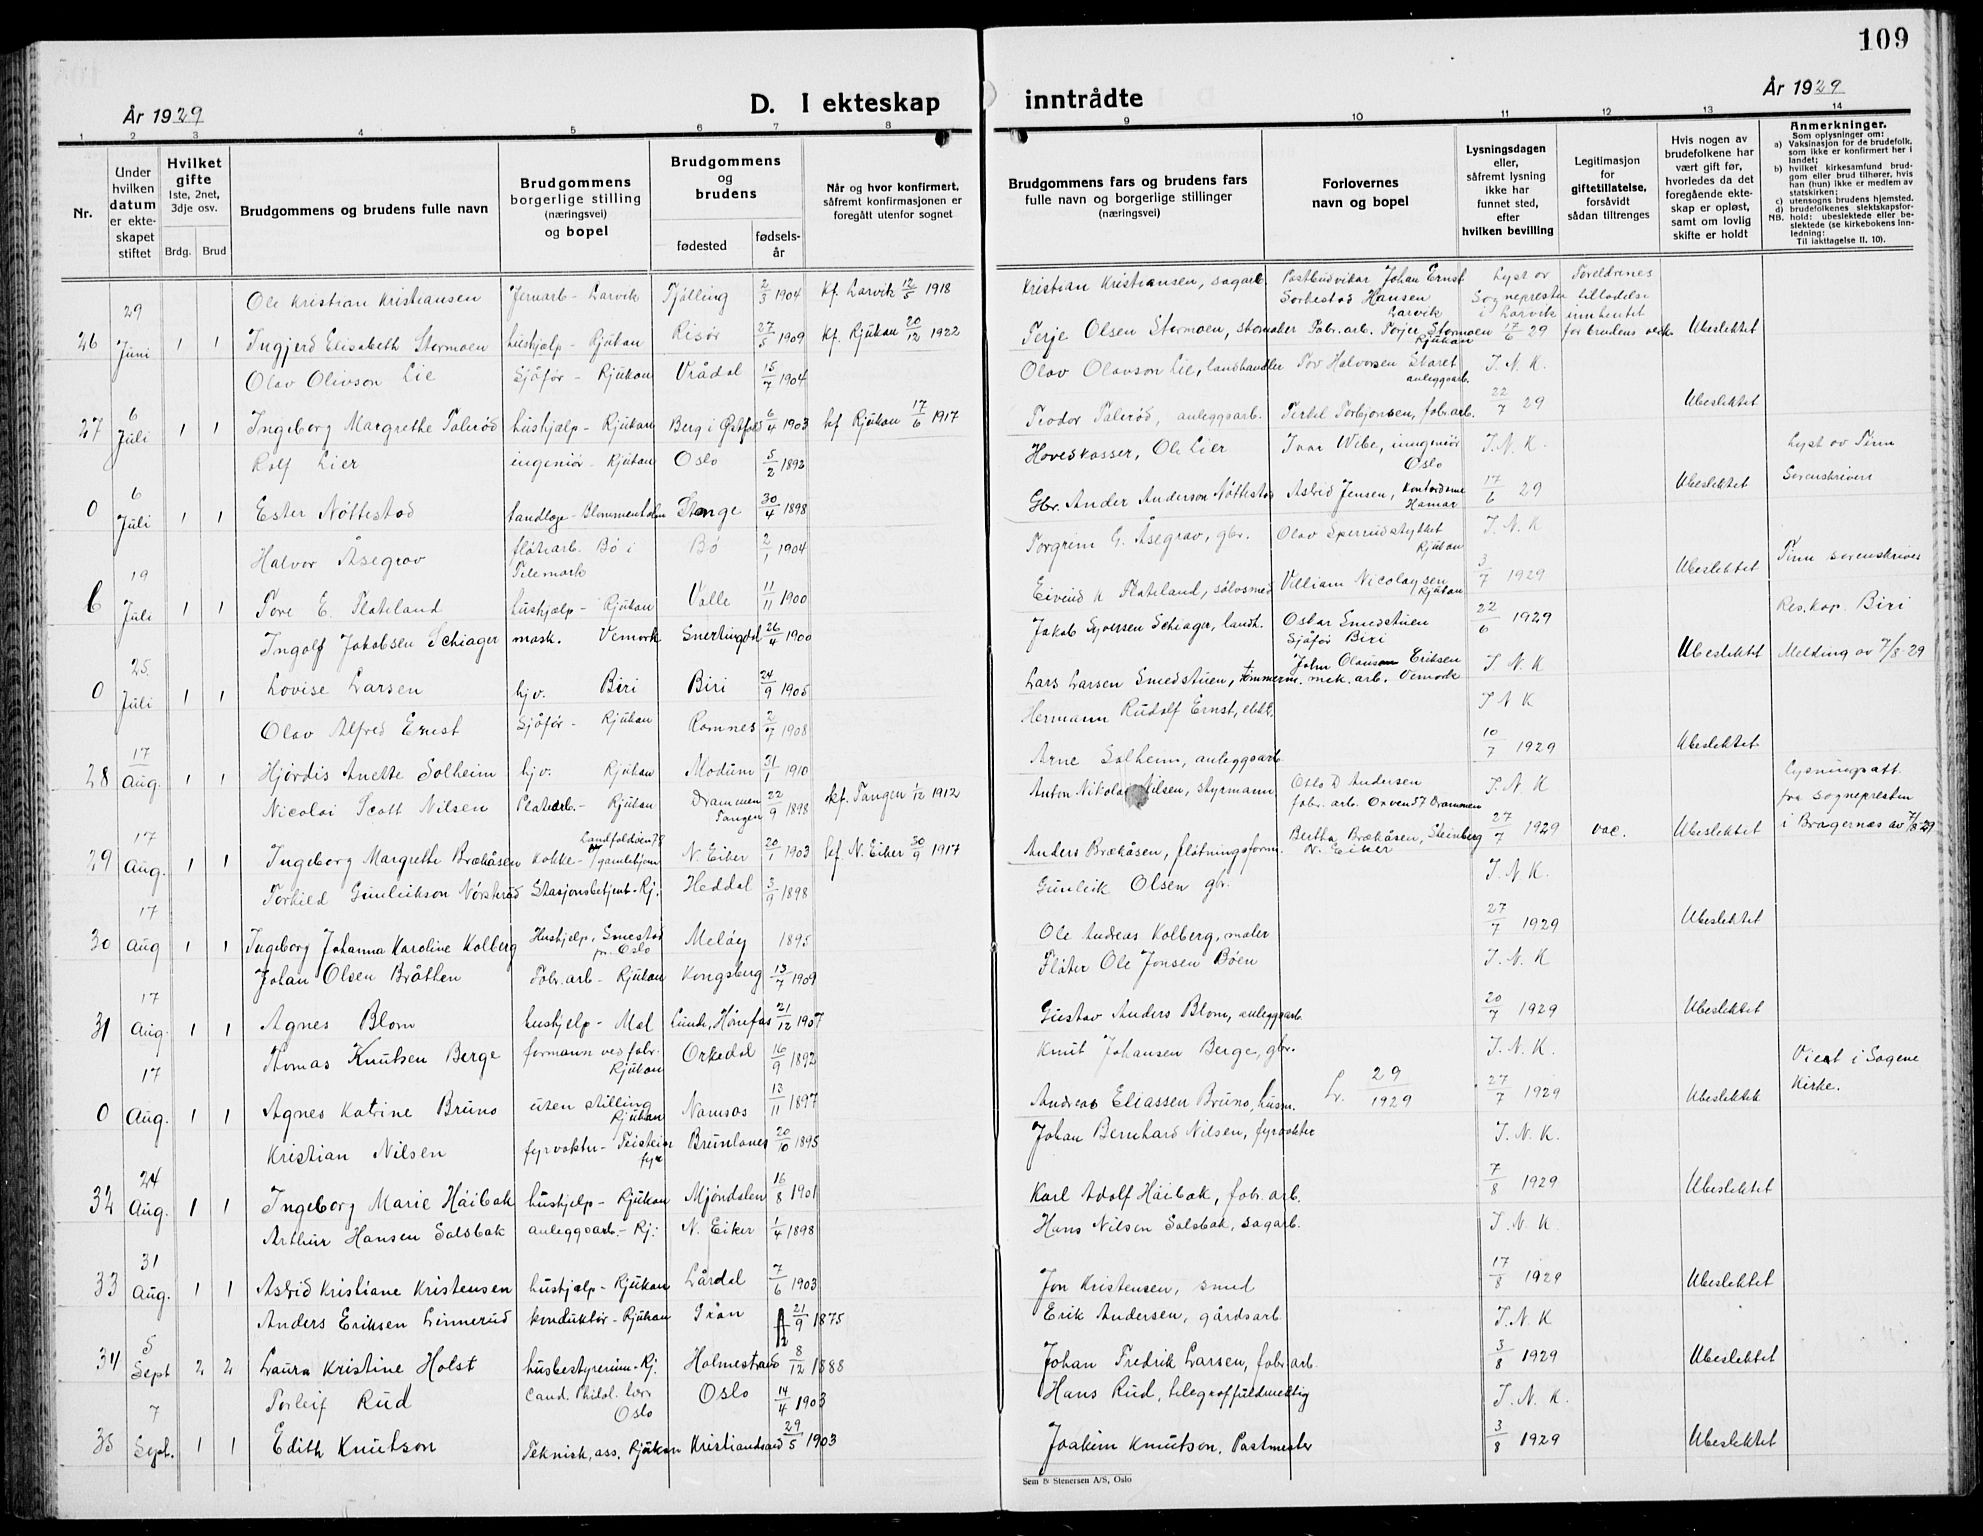 109
År 1929
D. I ekteskap inntrådte
År 1929
1 2 3 4 5 6 7 8 9 10 11 12 13 14
Nr.
Under hvilken datum er ekteskapet stiftet
Hvilket gifte 1ste, 2net, 3dje osv.
Brdg. Brud
Brudgommens og brudens fulle navn
Brudgommens borgerlige stilling (næringsvei) og bopel
Brudgommens og brudens
fødested
fødsels-år
Når og hvor konfirmert, såfremt konfirmasjonen er foregått utenfor sognet
Brudgommens fars og brudens fars fulle navn og borgerlige stillinger (næringsvei)
Forlovernes navn og bopel
Lysningsdagen eller, såfremt lysning ikke har funnet sted, efter hvilken bevilling
Legitimasjon for giftetillatelse, forsåvidt sådan tiltrenges
Hvis nogen av brudefolkene har vært gift før, hvorledes da det foregående ekteskap er opløst, samt om lovlig skifte er holdt
Anmerkninger.
Som oplysninger om:
a) Vaksinasjon for de brudefolk, som ikke er konfirmert her i landet;
b) hvilket kirkesamfund brudgom eller brud tilhører, hvis han (hun) ikke er medlem av statskirken;
c) utensogns brudens hjemsted.
d) brudefolkenes slektskapsforhold: ubeslektede eller beslektede (se kirkebokens innledning:
NB. Til iakttagelse II. 10).
Ole Kristian Kristiansen Jernarb - Larvik Tjølling 2/3 1904 Kf. Larvik 12/5 1918 Kristian Kristiansen, sagarb. Postbudvikar Johan Ernst Sørbestad Hansen Larvik Lyst av Sognepresten i Larvik Foreldrenes tilladelse innhentet for brudens vedk.
26 29 Juni 1 1 Ingjerd Elisabeth Stormoen hushjælp - Rjukan Risør 27/5 1909 kf. Rjukan 20/12 1922 Terje Olsen Stormoen, Fabr. arb. Torjer Stormoen Rjukan 17/6 29 Ubeslektet
Olav Olivson Lie Sjåfør - Rjukan Vrådal 15/7 1904 Olav Olavson Lie, landhandler Tov Halvorsen Staret anleggsarb. I. N. K.
27 6 Juli 1 1 Ingeborg Margrethe Talerød hushjælp - Rjukan Berg i Østfold 6/4 1903 kf Rjukan 17/6 1917 Teodor Talerød, anleggsarb. Tertel Torbjørnsen, fabr. arb. 22/7 29 Ubeslektet
Rolf Lier ingeniør - Rjukan Oslo 5/2 1892 Hoveskasser, Ole Lier Ivar Wibe, inngeniør Oslo I. N. K. Lyst av Tinn Sorenskriveri
0 6 Juli 1 1 Ester Nøttestad tandlæge - Blommenholm Stange 30/4 1898 Gbr. Ander Anderson Nøttestad Astrid Jensen, Kontordame Hamar 17/6 29 Ubeslektet
Halvor Åsegrav fløterarb. Bø i Telemark Bø 2/1 1904 Torgrim G. Åsegrav, gbr. Olav Sperrudstykket Rjukan I. N. K Tinn sorenskriver
6 19 Juli 1 1 Tore E. Flateland hushjælp - Rjukan Valle 11/11 1900 Eivind K Flateland, sølvsmed Villiam Nicolaysen Rjukan 3/7 1929 Ubeslektet
Ingolf Jakobsen Schiager mask. Vemork Snertingdal 26/4 1900 Jakob Syversen Schiager, landh. Oskar Smedstuen Sjåfør Biri 22/6 1929 Res. kap. Biri
0 25 Juli 1 1 Lovise Larsen hjv. Biri Biri 24/9 1905 Lars Larsen Smedstuen, tømmerm. John Olausen Eriksen mek. arb. Vemork I. N. K Ubeslektet Melding av 7/8-29
Olav Alfred Ernst Sjåfør - Rjukan Ramnes 2/7 1908 Hermann Rudolf Ernst, elektr. I N K
28 17 Aug. 1 1 Hjørdis Anette Solheim hjv. Rjukan Modum 31/1 1910 Arne Solheim, anleggsarb 10/7 1929 Ubeslektet
Nicolai Scott Nilsen Platearb. - Rjukan Drammen Tangen 22/9 1898 kf. Tangen 1/12 1912 Anton Nikolai Nilsen, styrmann Otto D Andersen fabr. arb. Øvend 7 Drammen I. N. K Lysningsatt. fra sognepresten i Bragernæs av 7/8-29
29 17 Aug. 1 1 Ingeborg Margrethe Brækåsen kokke - Landfaldøien 78 gamlehjem N. Eiker 20/1 1903 kf. N. Eiker 30/9 1917 Anders Brækåsen, fløtningsform. Bertha Brækåsen, Steinberg N. Eiker 27/7 1929 vac. Ubeslektet
Torkild Gunleikson Nørsterud Stasjonsbetjent - Rj. Heddal 3/9 1898 Gunleik Olsen gbr. I. N. K.
30 17 Aug 1 1 Ingeborg Johanna Karoline Kolberg Hushjelp, Smestad pr. Oslo Meløy 1895 Ole Andreas Kolberg, maler 27/7 1929 Ubeslektet
Johan Olsen Bråthen Fabr. arb - Rjukan Kongsberg 13/7 1909 Fløter Ole Jonsen Bøen I. N. K
31 17 Aug. 1 1 Agnes Blom hushjelp - Mæl Lunde, Hønefos 21/12 1907 Gustav Anders Blom, anleggsarb 20/7 1929 Ubeslektet
Thomas Knutsen Berge formann ved fabr. Rjukan Orkedal 16/9 1892 Knut Johansen Berge, gbr. I. N. K. Viet i Sagene Kirke.
0 17 Aug. 1 1 Agnes Katrine Bruno uten stilling Rjukan Namsos 13/11 1897 Andreas Eliassen Bruno, husm. L. 29/1929 27/7 1929 Ubeslektet
Kristian Nilsen fyrvokter - Feistein fyr Brunlanes 20/10 1895 Johan Bernhard Nilsen, fyrvokter I. N. K.
32 24 Aug. 1 1 Ingeborg Marie Håibak hushjelp - Rjukan Mjøndalen 16/8 1901 Karl Adolf Håibak, fabr. arb. 7/8 1929 Ubeslektet
Arthur Hansen Solsbak anleggsarb. - Rj: N. Eiker 1/4 1898 Hans Nilsen Solsbak, sagarb. I. N. K.
33 31 Aug. 1 1 Astrid Kristiane Kristensen hushjælp - Rjukan Lårdal 7/6 1903 Jon Kristensen, smed 17/8 1929 Ubeslektet
Anders Eriksen Linnerud konduktør - Rjukan Gran 21/9 1875 Erik Andersen, gårdsarb. I. N. K
34 5 Sept 2 2 Laura Kristine Holst husbestyrerinne - Rj. Holmestrand 8/12 1888 Johan Fredrik Larsen, fabr arb 3/8 1929 Ubeslektet
Torleif Rud Cand. Philol. lær Oslo Oslo 14/4 1903 Hans Rud, telegraffuldmektig I. N. K.
35 7 Sept. 1 1 Edith Knutson Teknisk. ass. Rjukan Kristiansand 29/5 1903 Joakim Knutson, Postmester 3/8 1929 Ubeslektet
Sem & Stenersen A/S, Oslo